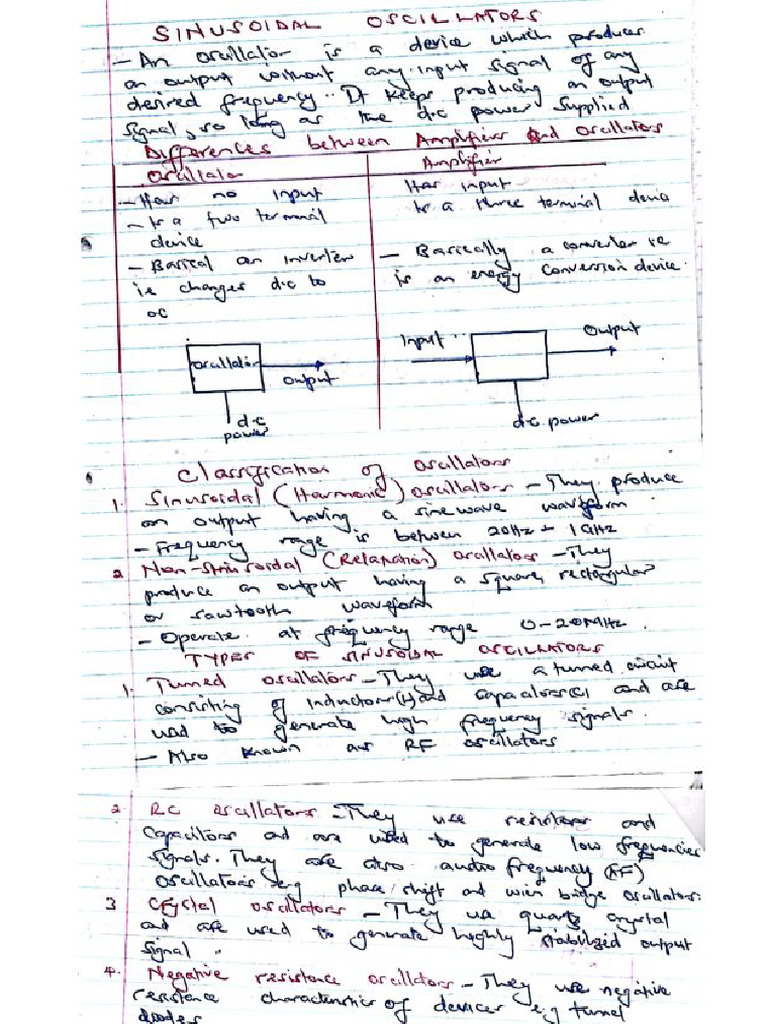 SINUSOIDAL OSCILLATORS
- An oscillator is a device which produces
an output without any input signal of any
desired frequency. It keeps producing an output
signal, so long as the d.c power supplied
Differences between Amplifiers and Oscillators
Oscillator
- Has no input
- Is a two terminal
device
- Basical an inverter
i.e changes d.c to
ac
Amplifier
Has input
Is a three terminal device
- Basically a converter i.e
is an energy conversion device.
oscillator
output
d.c
power
Input
Output
d.c. power
Classification of oscillators
1. Sinusoidal (Harmonic) oscillators - They produce
an output having a sinewave waveform
- Frequency range is between 20Hz - 1GHz
2 Non-sinusoidal (Relaxation) oscillators - They
produce an output having a square, rectangular
or sawtooth waveform
- Operate at frequency range 0-20MHz.
TYPES OF SINUSOIDAL OSCILLATORS
1. Turned oscillators - They use a turned circuit
consisting of inductors(L) and capacitors(c) and are
used to generate high frequency signals.
- Also known as RF oscillators
2. RC oscillators - They use resistors and
capacitors and are used to generate low frequencies
signals. They are also audio frequency (AF)
oscillators e.g phase shift and wien bridge oscillators.
3 Crystal oscillators - They use quartz crystal
and are used to generate highly stabilized output
signal.
4. Negative resistance oscillators - They use negative
resistance characteristics of devices e.g tunnel
diodes